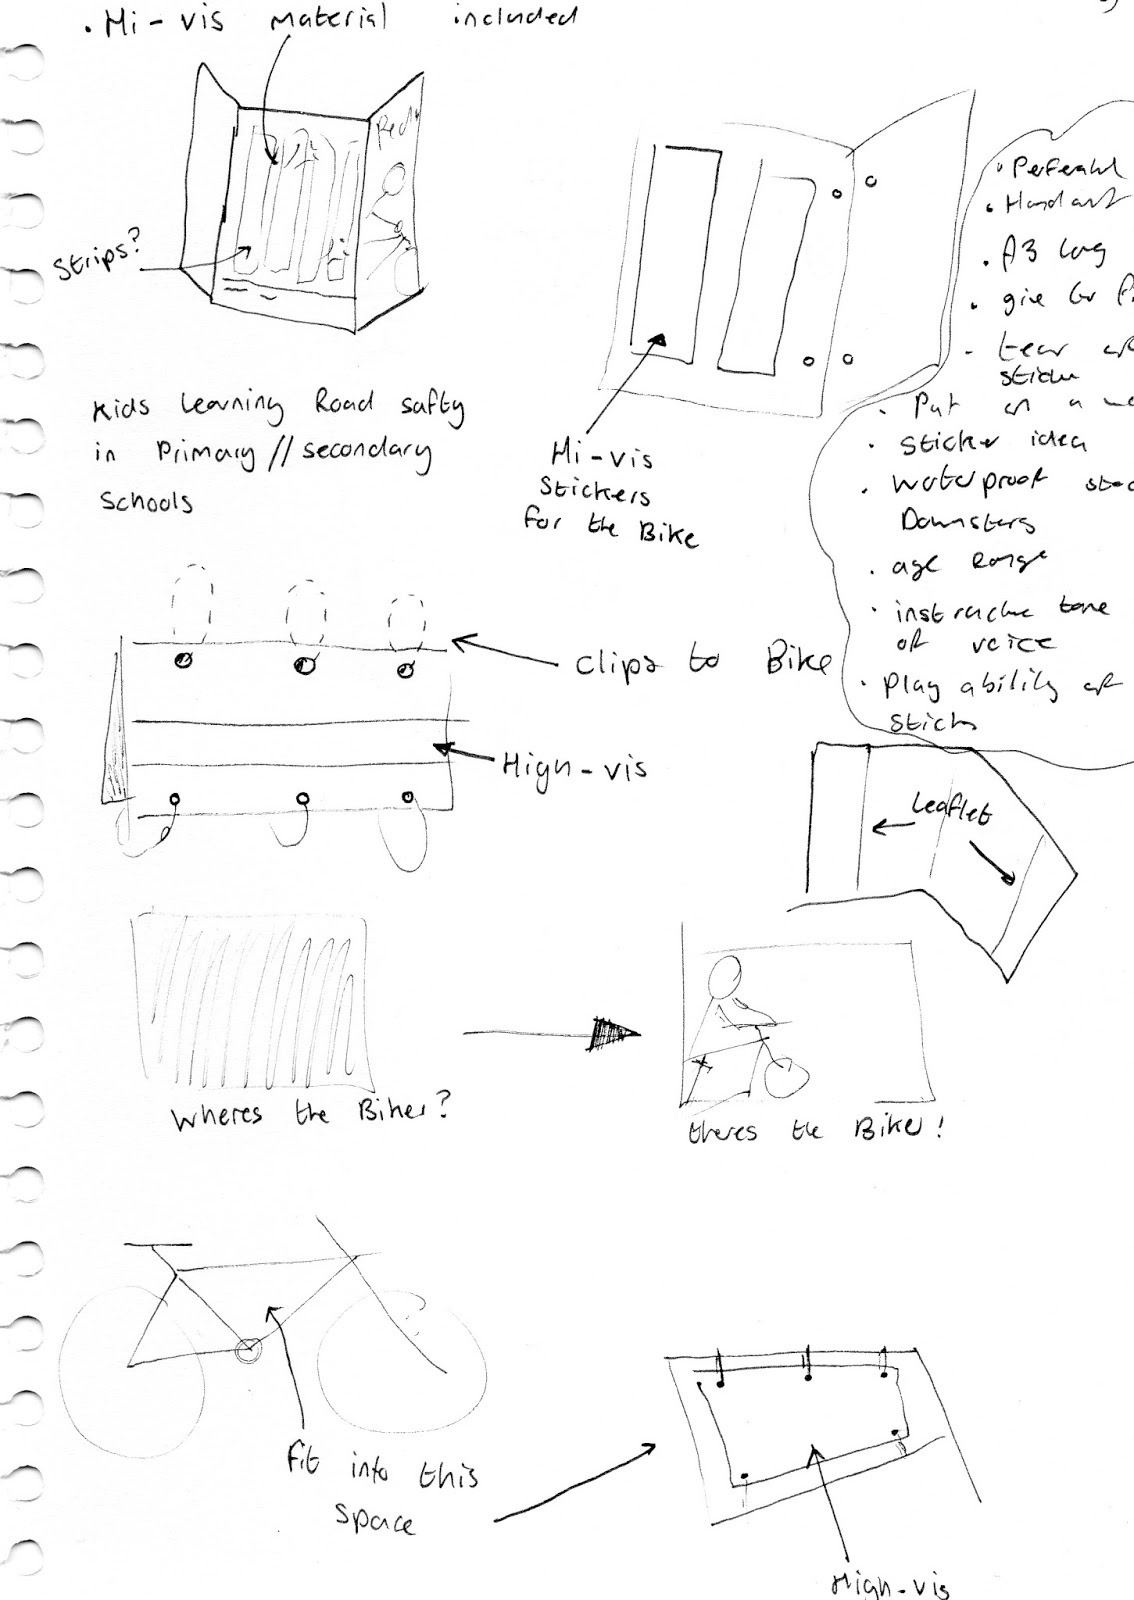 . Hi-vis material included
Strips?
Kids Learning Road safty
in Primary//secondary
Schools
Hi-vis
Stickers
for the Bike
. A3
. give
. tear
Put on a
. Sticker idea
. waterproof
. age Range
. instructive tone
of voice
. Play ability of
Clips to Bike
High-vis
Leaflet
Wheres the Biker?
theres the Biker!
Fit into this
Space
High-vis